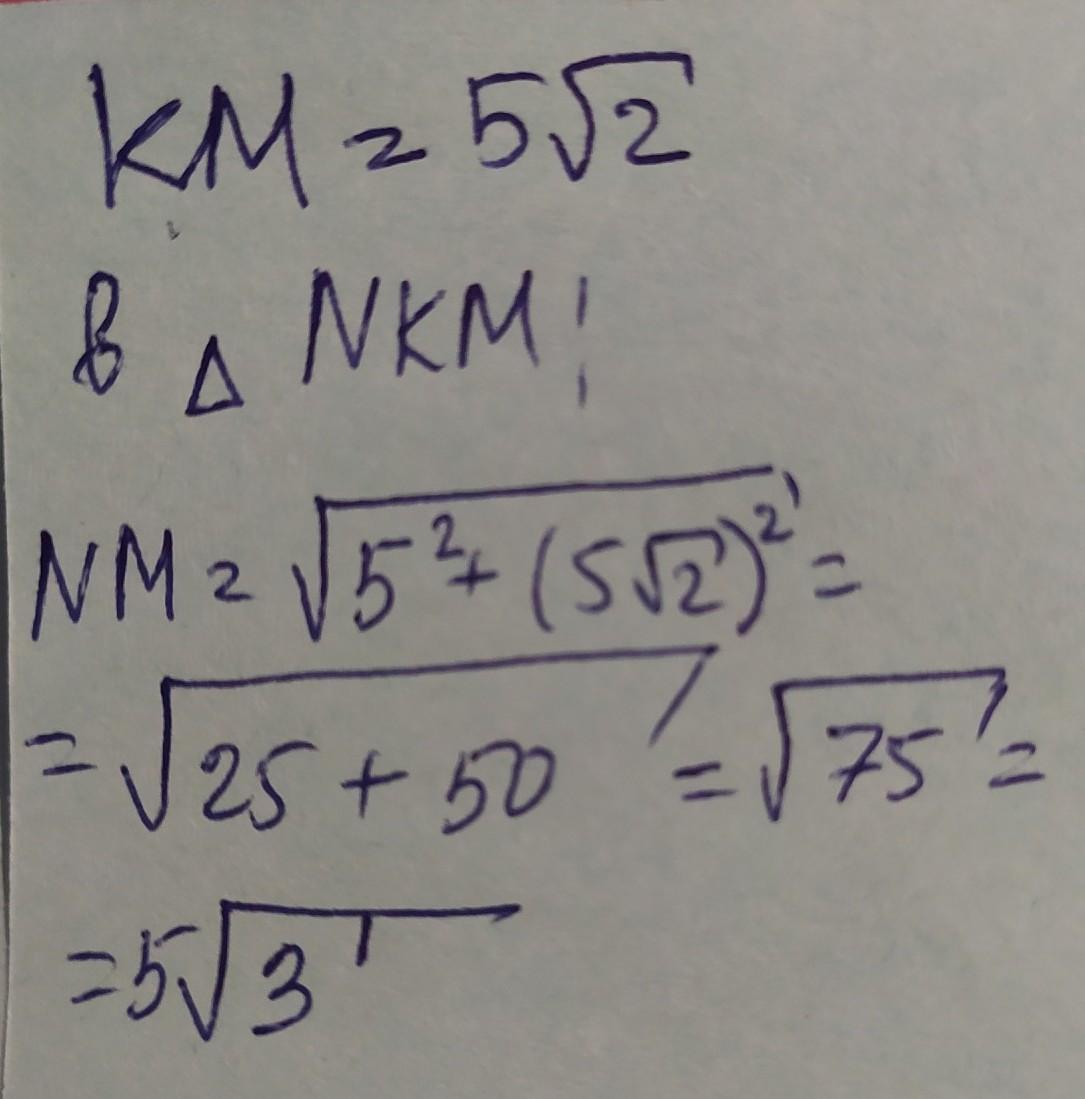 KM = 5√2
в △ NKM:
NM = √(5² + (5√2)²) =
= √(25 + 50) = √75 =
= 5√3